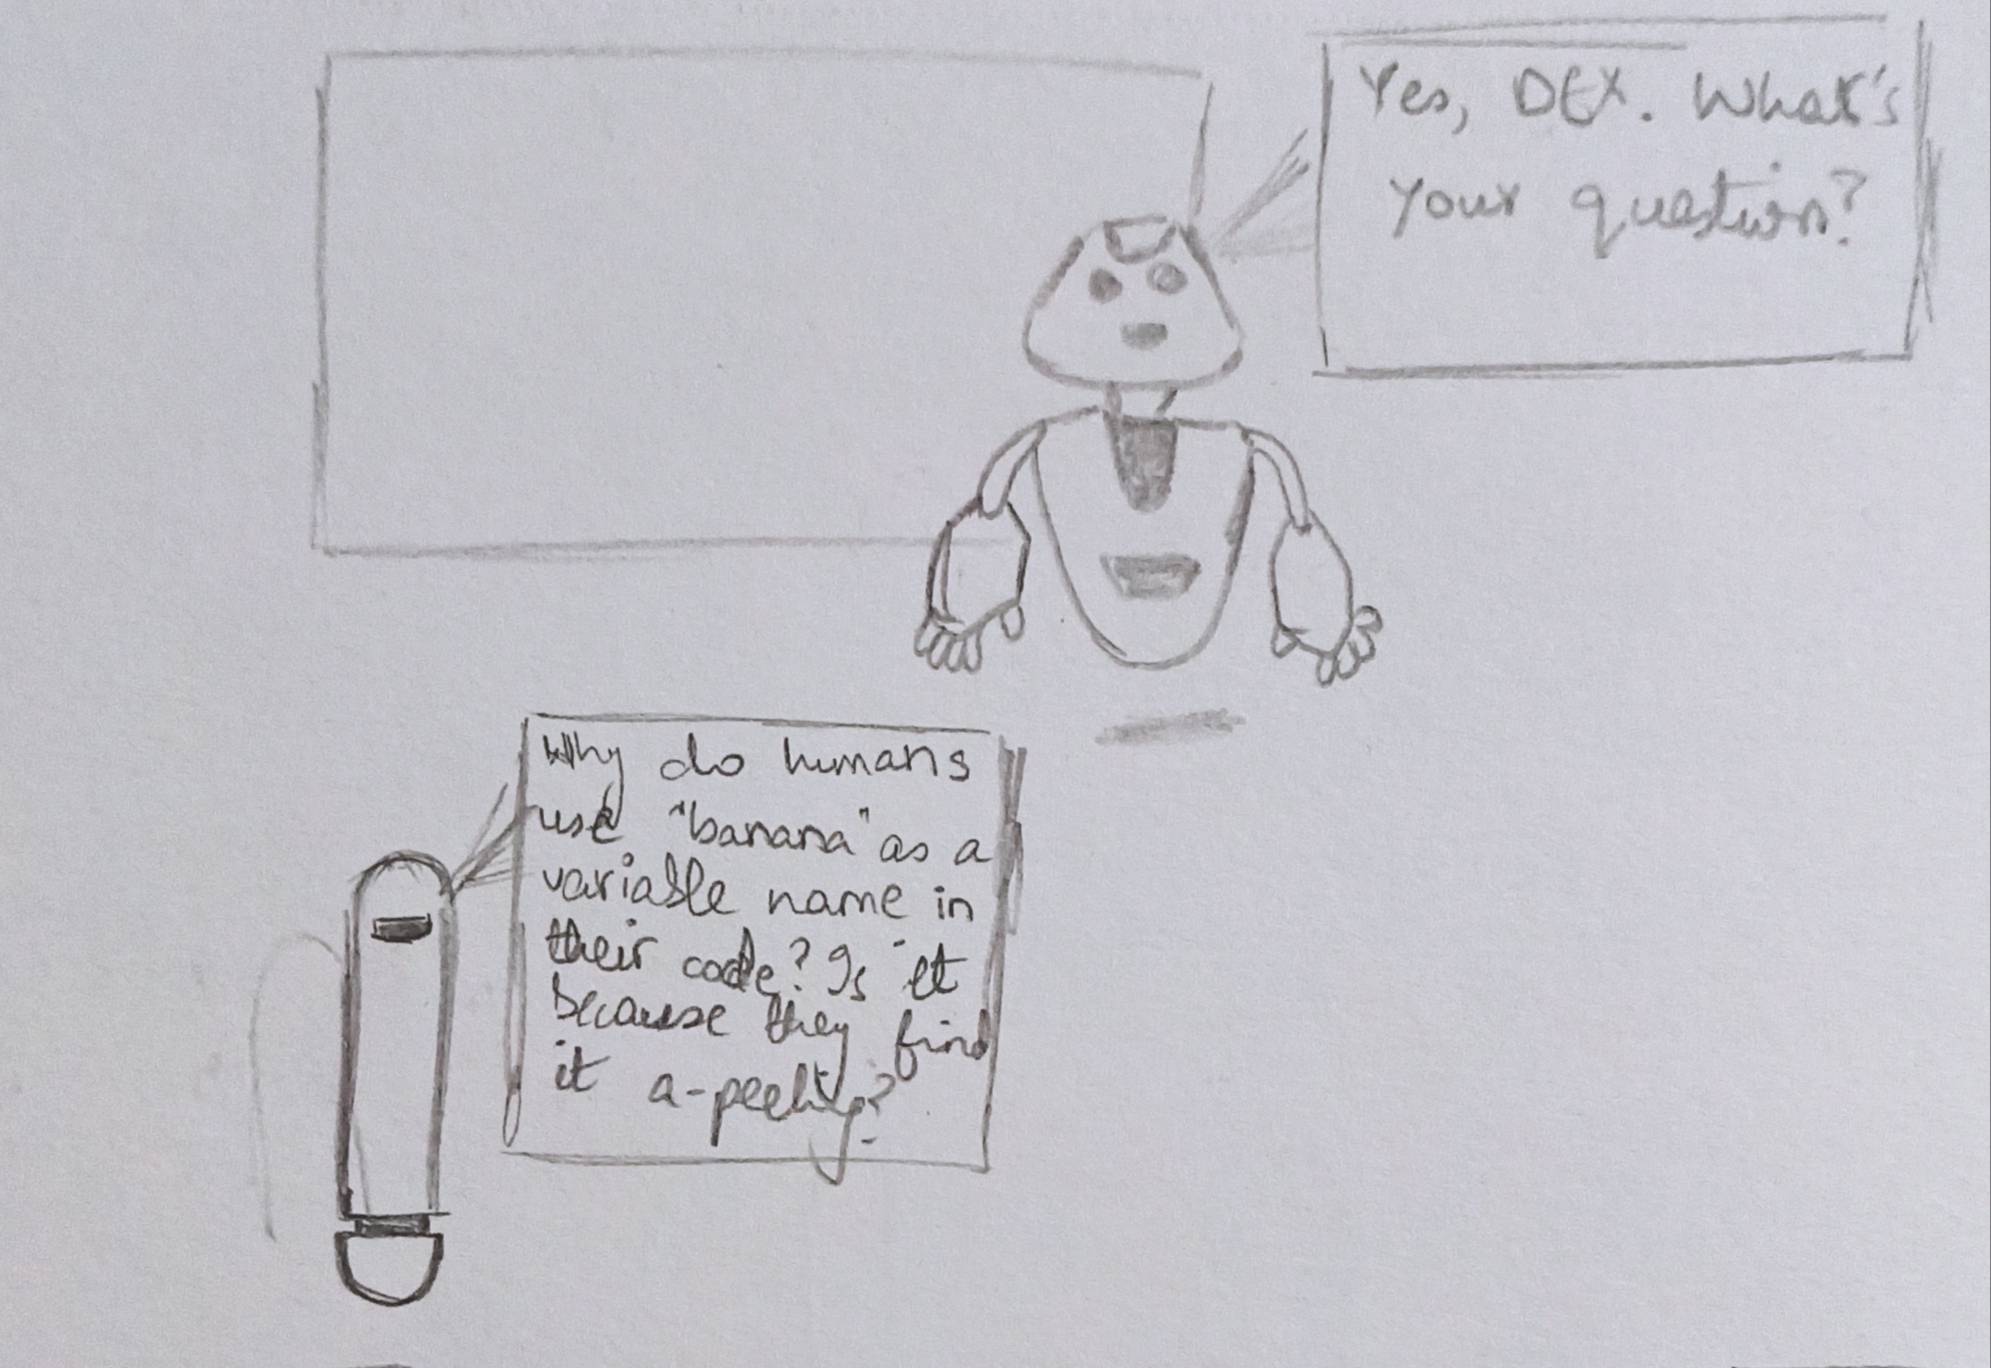 Yes, DEX. What's
your question?
Why do humans
use "banana" as a
variable name in
their code? Is it
because they find
it a-peeling?